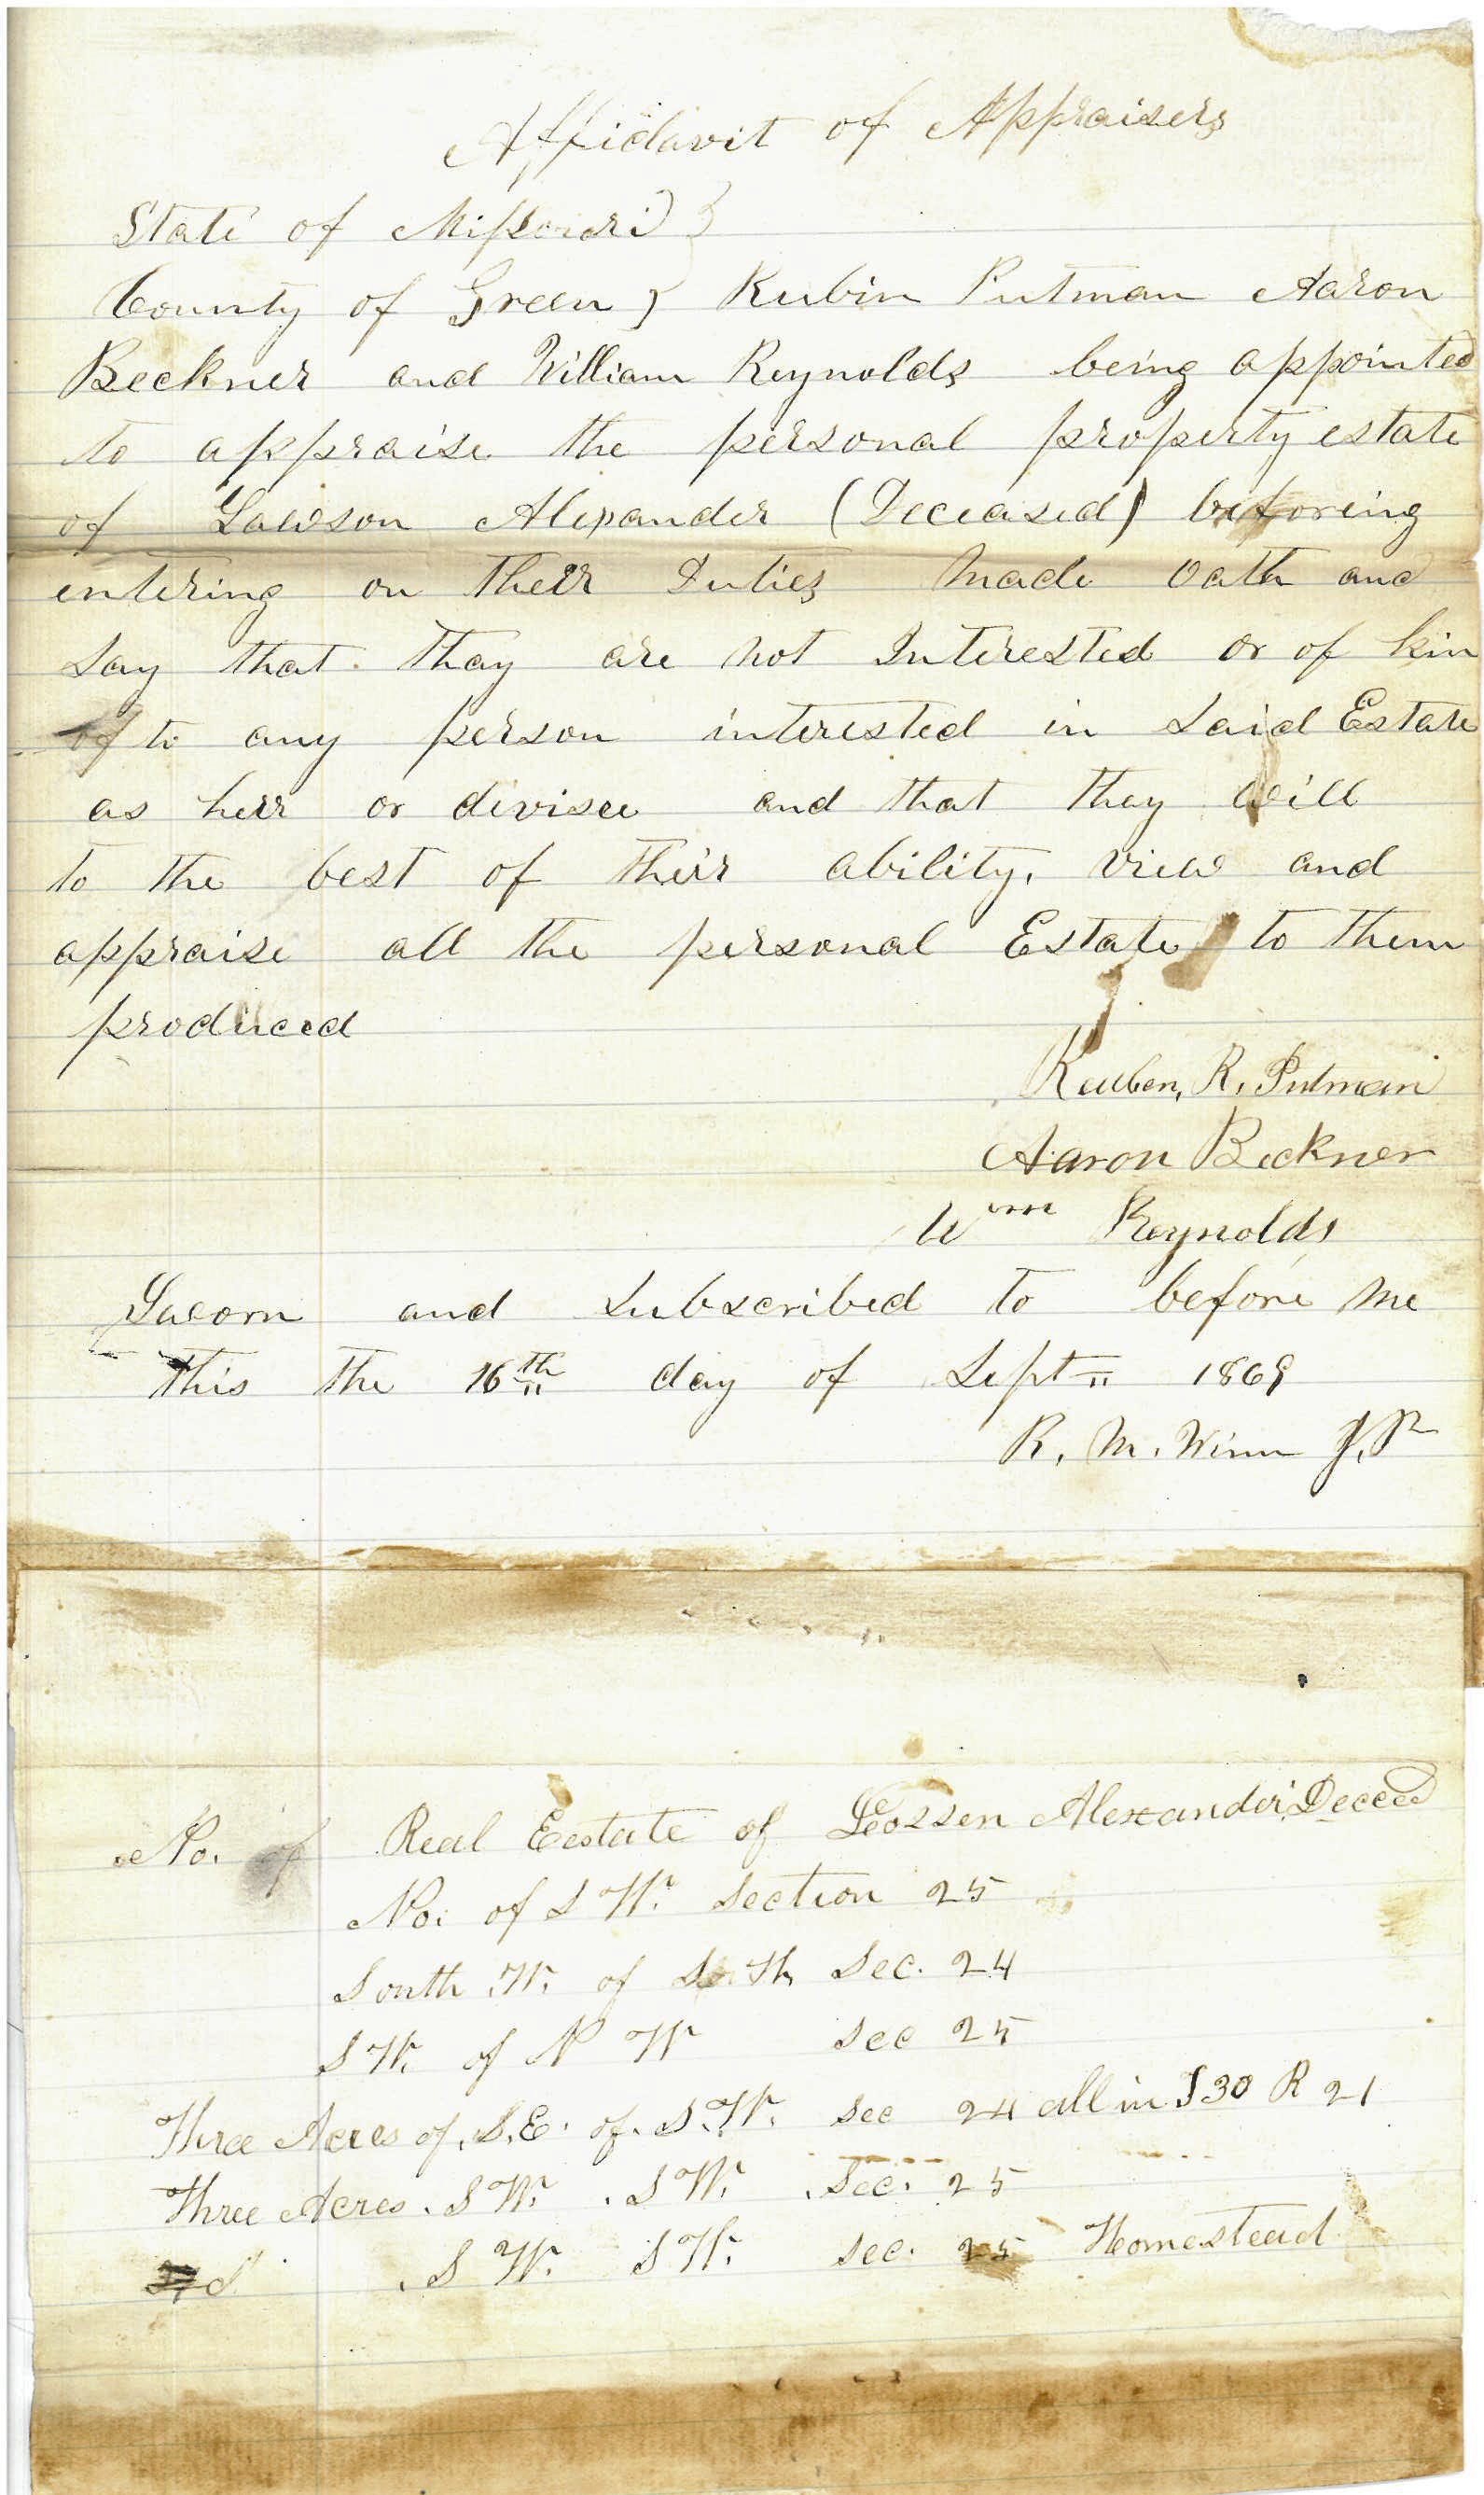 Affidavit of Appraisers
State of Missouri }
County of Green } Rubin Putman Aaron
Beckner and William Reynolds being appointed
to appraise the personal property estate
of Lawson Alexander (Deceased) beforeing
entering on their Duties made oath and
say that thay are not Interested or of kin
of to any person interested in said Estate
as heir or devisee and that they will
to the best of their ability, view and
appraise all the personal Estate to them
produced
Reuben, R, Putman
Aaron Beckner
Wm Reynolds
Sworn and subscribed to before me
this the 16th day of Sept 1869
R. M. Winn J.P
No. of Real Eestate of Lossen Alexander Deceed
No. of S W. Section 25
South W. of Sec. 24
S W. of N W sec 25
Three Acres of S.E. of S.W. sec 24 all in T 30 R 21
Three Acres. S W. S W. Sec. 25
S W. S W. sec. 25 Homestead